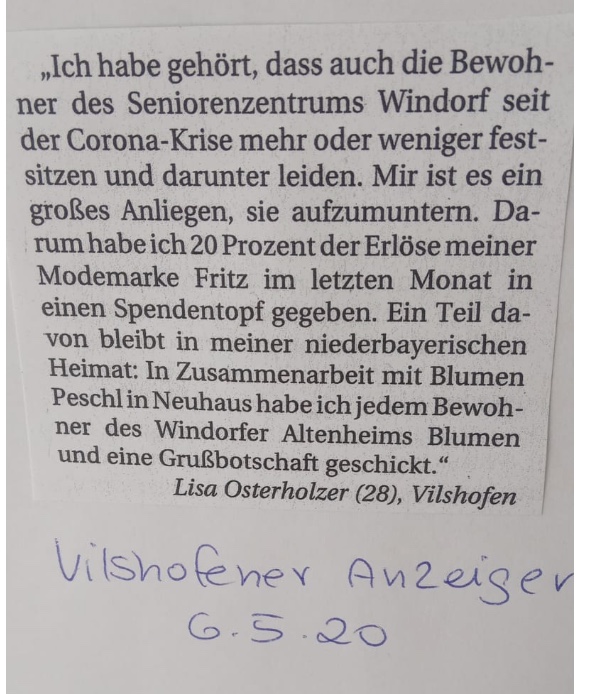 „Ich habe gehört, dass auch die Bewoh-
ner des Seniorenzentrums Windorf seit
der Corona-Krise mehr oder weniger fest-
sitzen und darunter leiden. Mir ist es ein
großes Anliegen, sie aufzumuntern. Da-
rum habe ich 20 Prozent der Erlöse meiner
Modemarke Fritz im letzten Monat in
einen Spendentopf gegeben. Ein Teil da-
von bleibt in meiner niederbayerischen
Heimat: In Zusammenarbeit mit Blumen
Peschl in Neuhaus habe ich jedem Bewoh-
ner des Windorfer Altenheims Blumen
und eine Grußbotschaft geschickt.“
Lisa Osterholzer (28), Vilshofen
Vilshofener Anzeiger
6.5.20